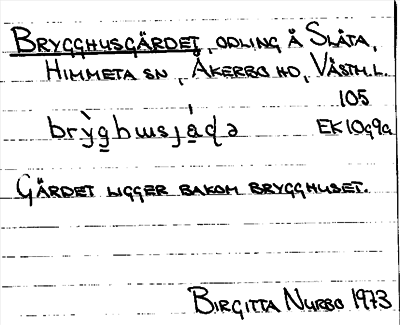 BRYGGHUSGÄRDET, ODLING Å SLÅTA,
HIMMETA SN, ÅKERBO HD, VÄSTM.L.
105
EK10g9a
GÄRDET LIGGER BAKOM BRYGGHUSET.
BIRGITTA NURBO 1973